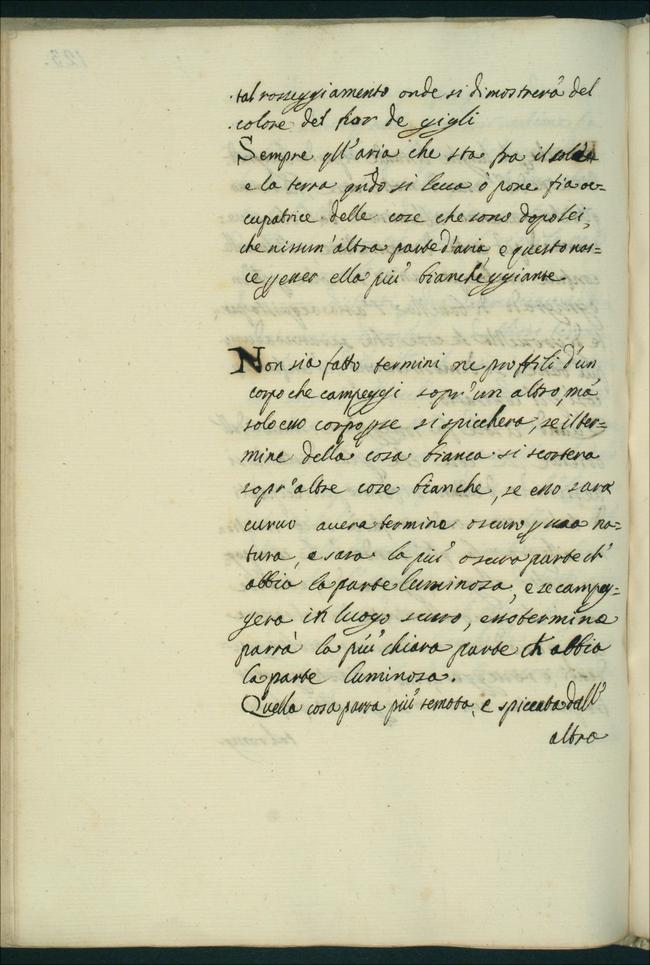 tal rosseggiamento onde si dimostrerà del
colore del fior de gigli
Sempre qll'aria che sta fra il
e la terra qndo si leua ò pone fia oc=
cupatrice delle cose che sono dopo lei,
che nissun'altra parte d'aria, e questo nas=
ce p esser ella più biancheggiante
Non sia fatto termini ne proffili d'un
corpo che campeggi sopr'un altro, mà
solo esso corpo p se si spiccherà, se il ter=
mine della cosa bianca si scotera
sopr'altre cose bianche, se esso sarà
curuo auera termine oscuro p sua na=
tura, e sara la più oscura parte ch'
abbia la parte luminosa, e se campeg=
gera in luogo scuro, esso termine
parrà la più chiara parte ch abbia
la parte luminosa.
Quella cosa parra più remota, e spiccata dall'
altra